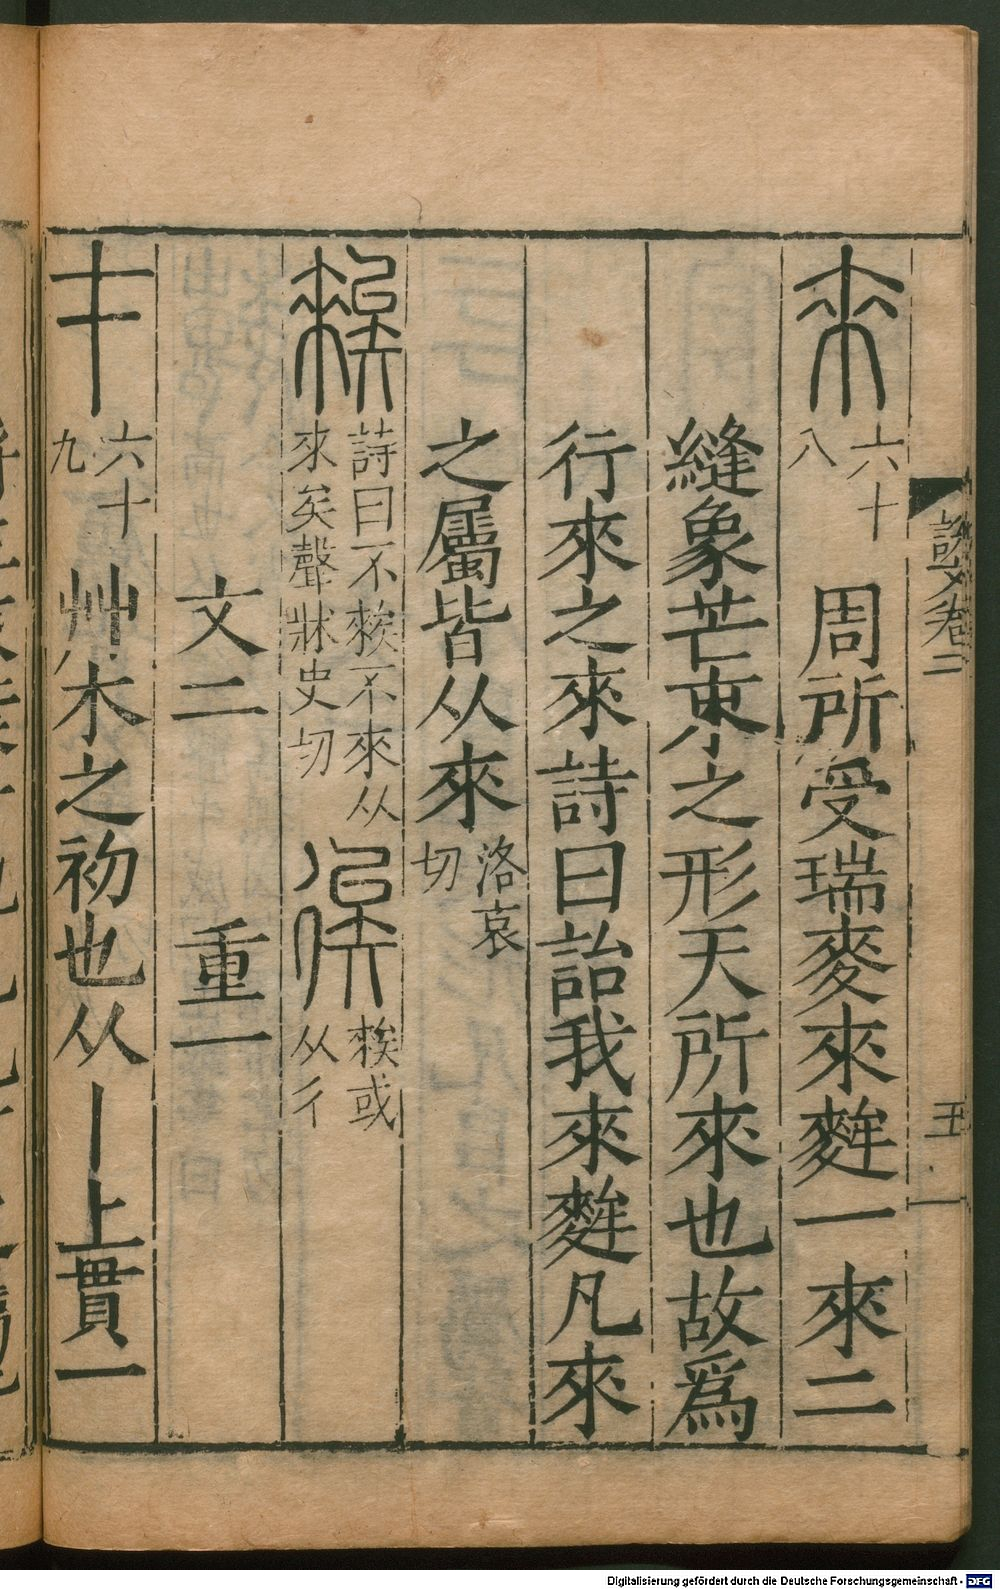 來 六十八 周所受瑞麥來麰一來二
縫象芒朿之形天所來也故爲
行來之來詩曰詒我來麰凡來
之屬皆从來 洛哀切
𥎦 詩曰不𥎦不來从來矣聲牀史切 𢓪 𥎦或从彳
文二 重一
才 六十九 艸木之初也从丨上貫一
說文卷二
五
Digitalisierung gefördert durch die Deutsche Forschungsgemeinschaft - DFG